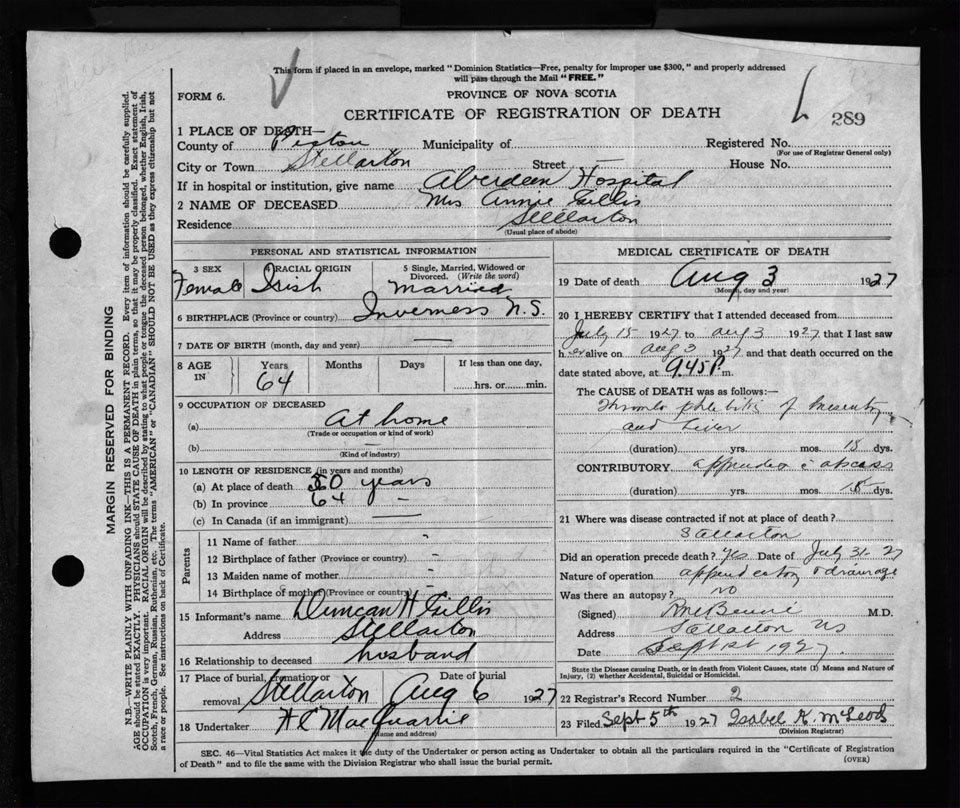 This form if placed in an envelope, marked "Dominion Statistics—Free, penalty for improper use $300," and properly addressed
will pass through the Mail "FREE."
FORM 6.
PROVINCE OF NOVA SCOTIA
CERTIFICATE OF REGISTRATION OF DEATH
289
1 PLACE OF DEATH—
County of Pictou Municipality of Registered No.
(For use of Registrar General only)
City or Town Stellarton Street — House No.
If in hospital or institution, give name Aberdeen Hospital
2 NAME OF DECEASED Mrs Annie Gillis
Residence Stellarton
(Usual place of abode)
PERSONAL AND STATISTICAL INFORMATION
3 SEX Female
RACIAL ORIGIN Irish
5 Single, Married, Widowed or Divorced. (Write the word) Married
6 BIRTHPLACE (Province or country) Inverness N.S.
7 DATE OF BIRTH (month, day and year) —
8 AGE IN Years 64 Months Days If less than one day, hrs. or min.
9 OCCUPATION OF DECEASED
(a) At home
(Trade or occupation or kind of work)
(b) —
(Kind of industry)
10 LENGTH OF RESIDENCE (in years and months)
(a) At place of death 30 years
(b) In province 64 —
(c) In Canada (if an immigrant) —
Parents
11 Name of father "
12 Birthplace of father (Province or country) "
13 Maiden name of mother "
14 Birthplace of mother (Province or country) "
15 Informant's name Duncan H Gillis
Address Stellarton
16 Relationship to deceased husband
17 Place of burial, cremation or removal Stellarton Date of burial Aug 6 1927
18 Undertaker H C MacQuarrie
(Name and address)
MEDICAL CERTIFICATE OF DEATH
19 Date of death Aug 3 1927
(Month, day and year)
20 I HEREBY CERTIFY that I attended deceased from
July 15 1927 to Aug 3 1927 that I last saw
h er alive on Aug 3 1927 and that death occurred on the
date stated above, at 9.45 P. m.
The CAUSE of DEATH was as follows:—
Thrombo phlebitis of mesentery
and Liver
(duration) yrs. mos. 18 dys.
CONTRIBUTORY appendix c abscess
(duration) yrs. mos. 18 dys.
21 Where was disease contracted if not at place of death?
Stellarton
Did an operation precede death? yes Date of July 31 27
Nature of operation appendectomy & drainage
Was there an autopsy? no
(Signed) M.D.
Address Stellarton NS
Date Sept 1st 1927.
State the Disease causing Death, or in death from Violent Causes, state (1) Means and Nature of
Injury, (2) whether Accidental, Suicidal or Homicidal.
22 Registrar's Record Number 2
23 Filed Sept 5th 1927 Isabel K. McLeod
(Division Registrar)
SEC. 46—Vital Statistics Act makes it the duty of the Undertaker or person acting as Undertaker to obtain all the particulars required in the "Certificate of Registration
of Death" and to file the same with the Division Registrar who shall issue the burial permit.
(OVER)
MARGIN RESERVED FOR BINDING
N.B.—WRITE PLAINLY WITH UNFADING INK—THIS IS A PERMANENT RECORD. Every item of information should be carefully supplied.
AGE should be stated EXACTLY. PHYSICIANS should STATE CAUSE OF DEATH in plain terms, so that it may be properly classified. Exact statement of
OCCUPATION is very important. RACIAL ORIGIN will be described by stating to what people or tongue the deceased person belonged, whether English, Irish,
Scotch, French, German, Russian, Ruthenian, etc. The terms "AMERICAN" or "CANADIAN" SHOULD NOT BE USED as they express citizenship but not
a race or people. See instructions on back of Certificate.